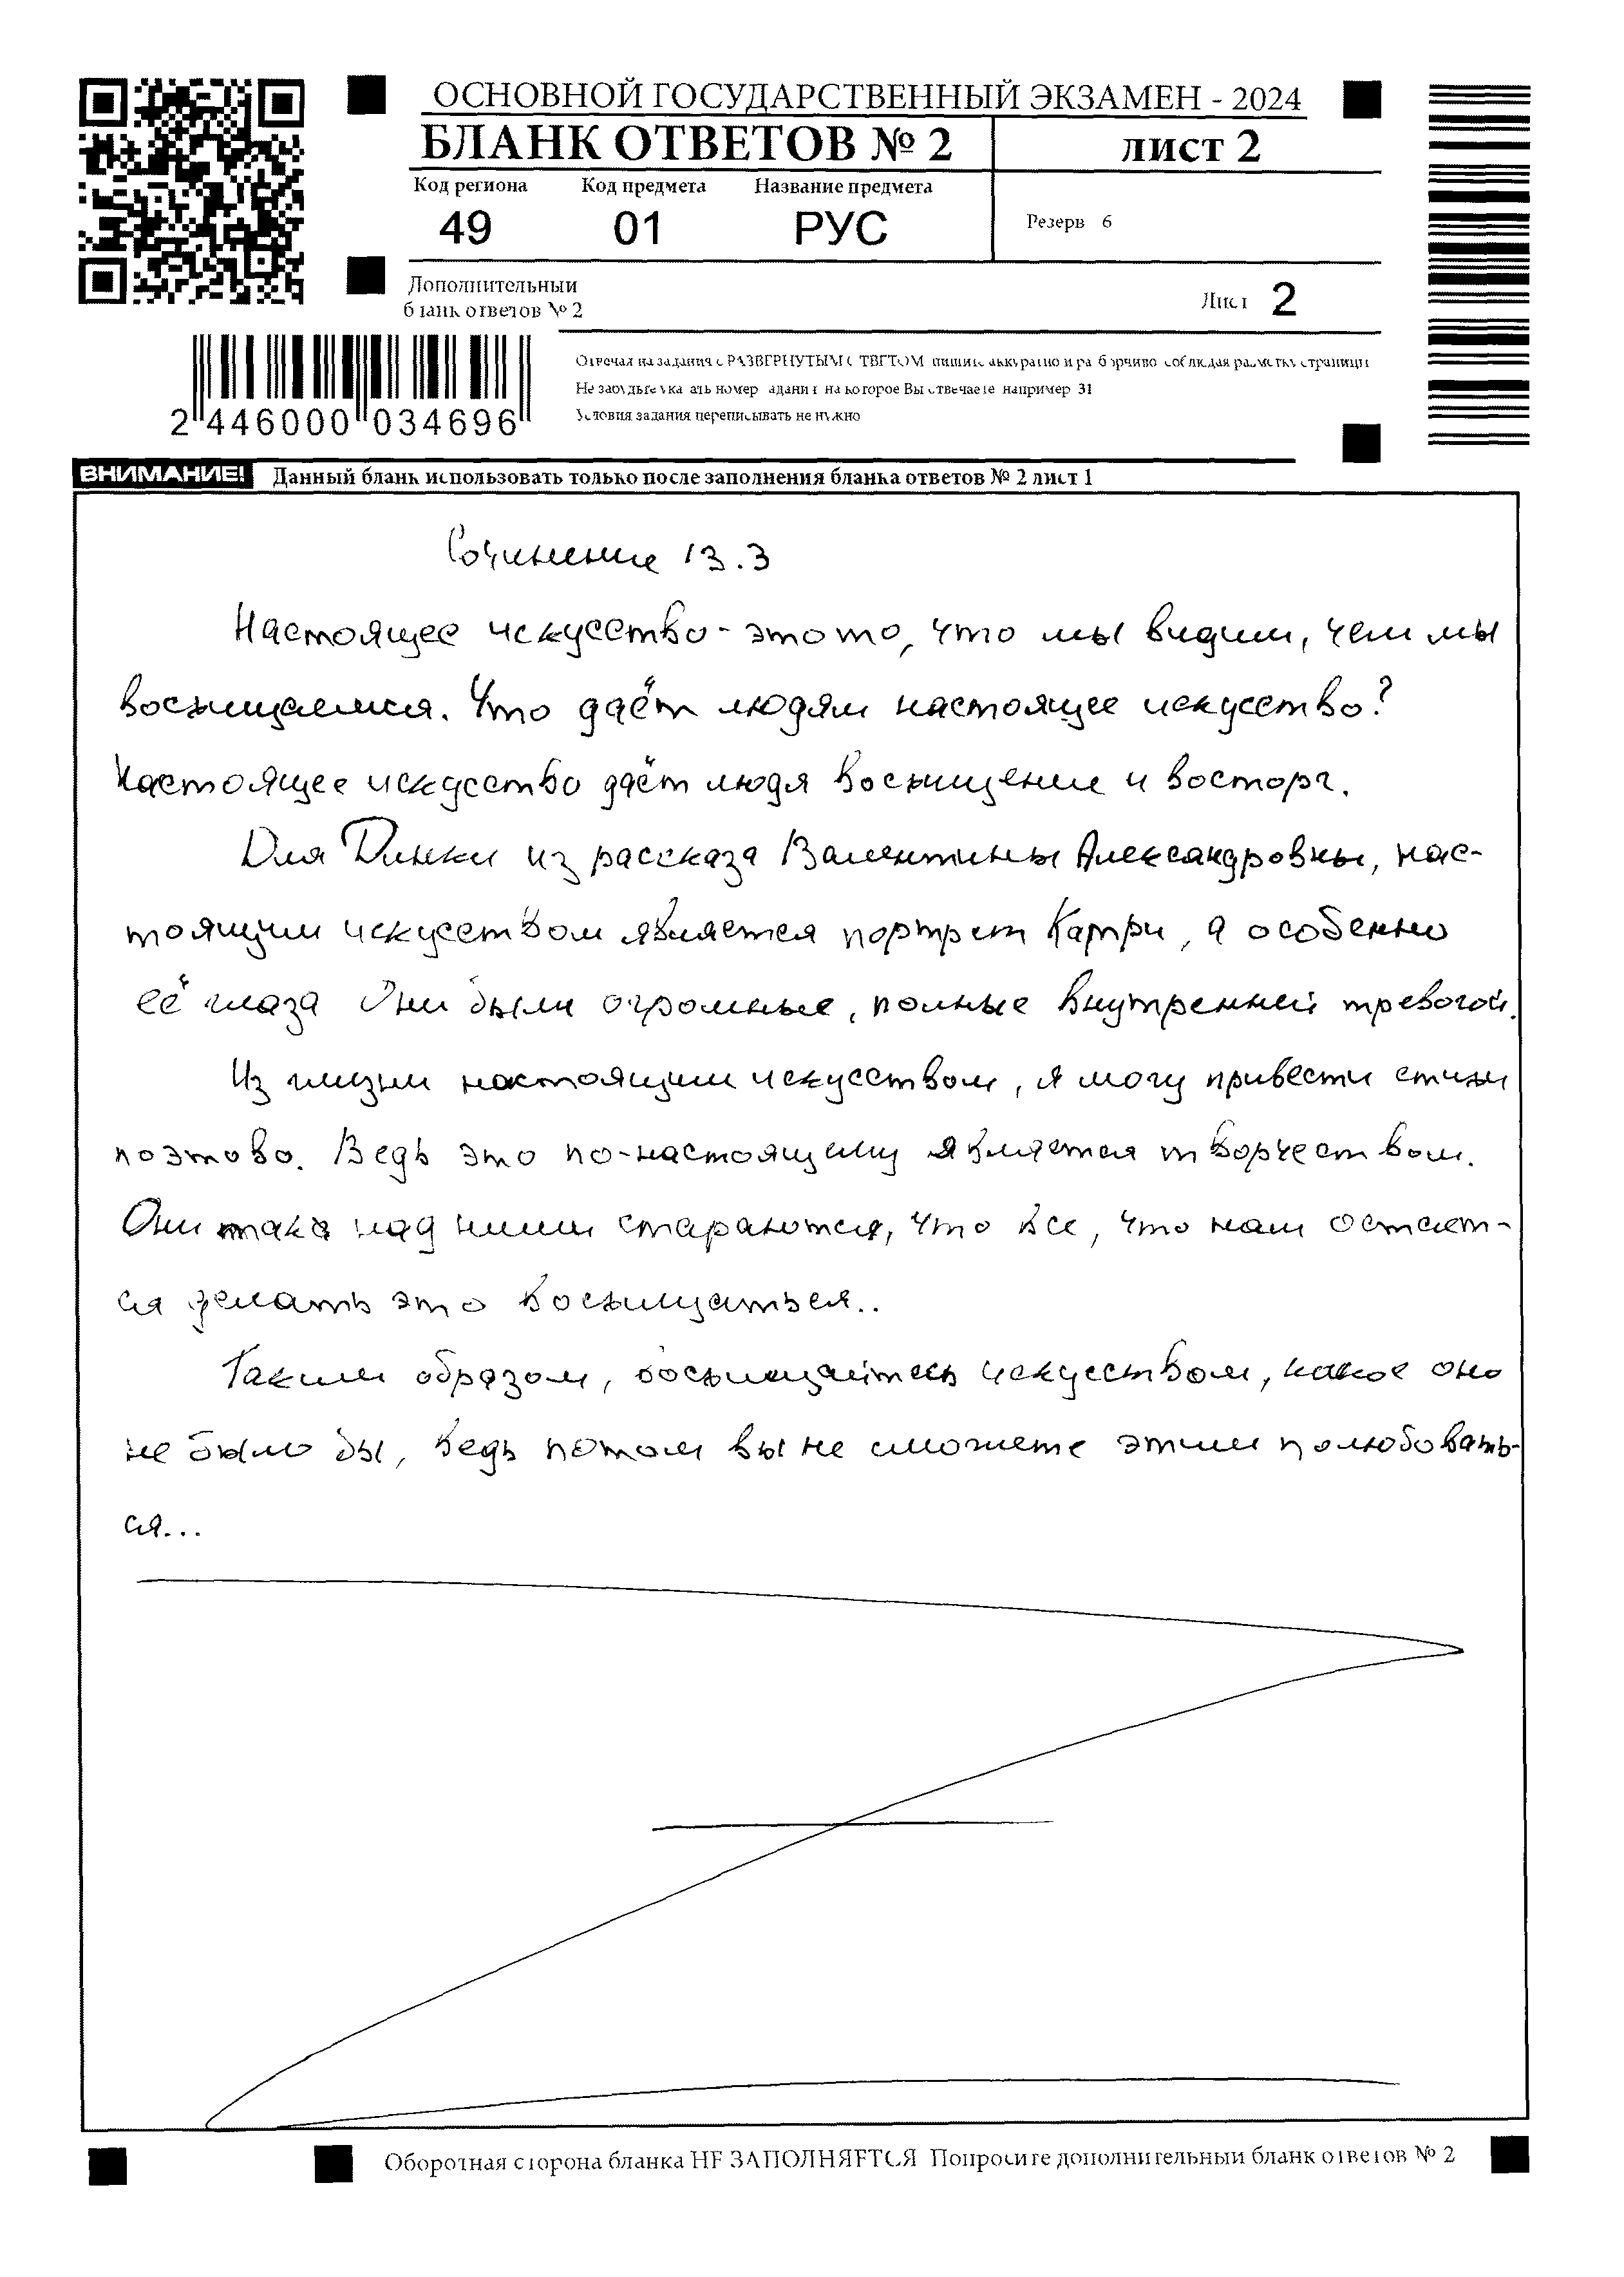 ОСНОВНОЙ ГОСУДАРСТВЕННЫЙ ЭКЗАМЕН - 2024
БЛАНК ОТВЕТОВ № 2 ЛИСТ 2
Код региона Код предмета Название предмета
49 01 РУС
Резерв 6
Дополнительный
бланк ответов № 2
Лист 2
Отвечая на задания с РАЗВЕРНУТЫМ ОТВЕТОМ пишите аккуратно и разборчиво соблюдая разметку страницы
Не забудьте указать номер задания на которое Вы отвечаете например 31
Условия задания переписывать не нужно
2 446000 034696
ВНИМАНИЕ! Данный бланк использовать только после заполнения бланка ответов № 2 лист 1
Сочинение 13.3
Настоящее искусство - это то, что мы видим, чем мы
восхищаемся. Что даёт людям настоящее искусство?
Настоящее искусство даёт людя восхищение и восторг.
Для Динки из рассказа Валентины Александровны, нас-
тоящим искусством является портрет Катри, а особенно
её глаза Они были огромные, полные внутренней тревогой.
Из жизни настоящим искусством, я могу привести стихи
поэтово. Ведь это по-настоящему является творчеством.
Они така над ними стараются, что все, что нам остает-
ся делать это восхищаться..
Таким образом, восхищайтесь искусством, какое оно
не было бы, ведь потом вы не сможете этим полюбовать-
ся...
Оборотная сторона бланка НЕ ЗАПОЛНЯЕТСЯ Попросите дополнительный бланк ответов № 2